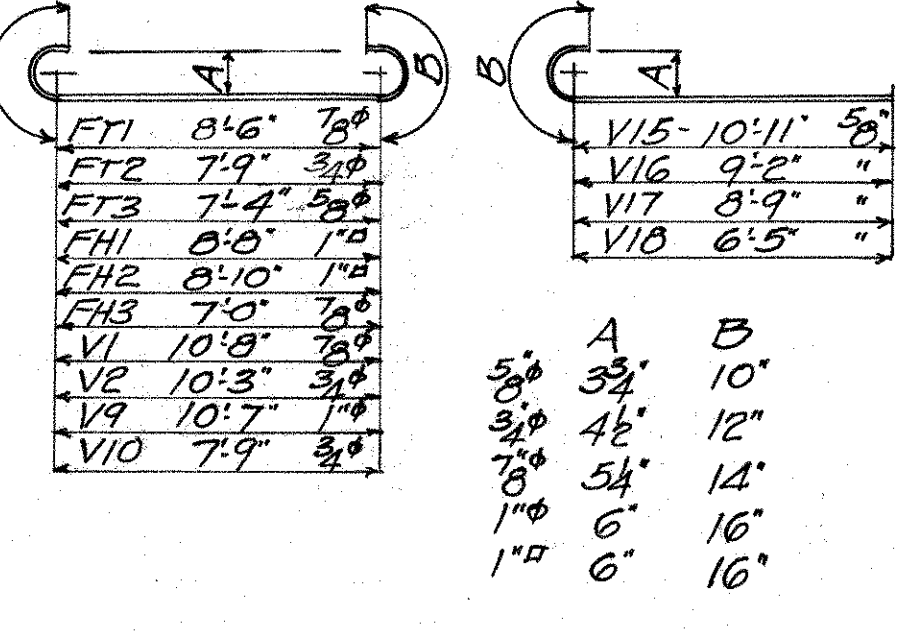 A B
FT1 8'-6" 7/8"ϕ
FT2 7'-9" 3/4"ϕ
FT3 7'-4" 5/8"ϕ
FH1 8'-8" 1"□
FH2 8'-10" 1"□
FH3 7'-0" 7/8"ϕ
V1 10'-8" 7/8"ϕ
V2 10'-3" 3/4"ϕ
V9 10'-7" 1"ϕ
V10 7'-9" 3/4"ϕ
B A
V15- 10'-11" 5/8"
V16 9'-2" "
V17 8'-9" "
V18 6'-5" "
A B
5/8"ϕ 3 3/4" 10"
3/4"ϕ 4 1/2" 12"
7/8"ϕ 5 1/4" 14"
1"ϕ 6" 16"
1"□ 6" 16"